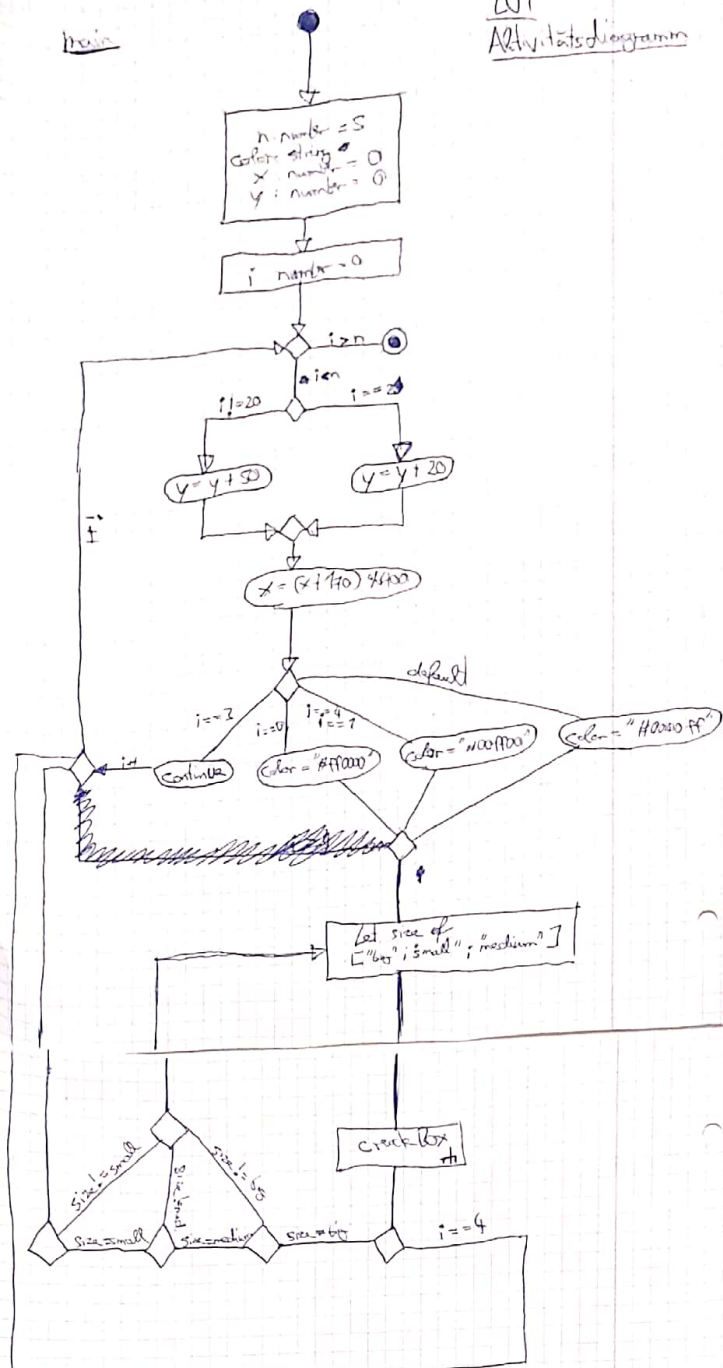 main
L01
Aktivitätsdiagramm
n: number = 5
color: string
x: number = 0
y: number = 0
i number = 0
i>n
i<n
i!=20
y = y + 50
y = y + 20
x = (x + 170) %
default
i==3
i==0
i==4
i==1
continue
color = "#ff0000"
color = "#00ff00"
color = "#0000ff"
Let size of
["big"; "small"; "medium"]
size!=small
size!=big
size=small
size=medium
size=big
i==4